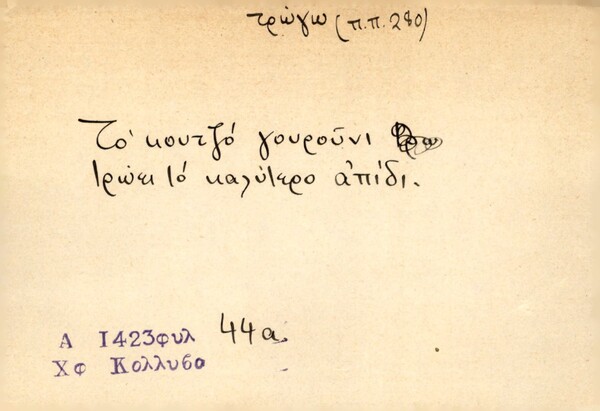 τρώγω (π.π. 280)
Τό κουτζό γουρούνι
τρώει τό καλύτερο ἀπίδι.
Α 1423φυλ 44α.
Χφ Κολλυβα